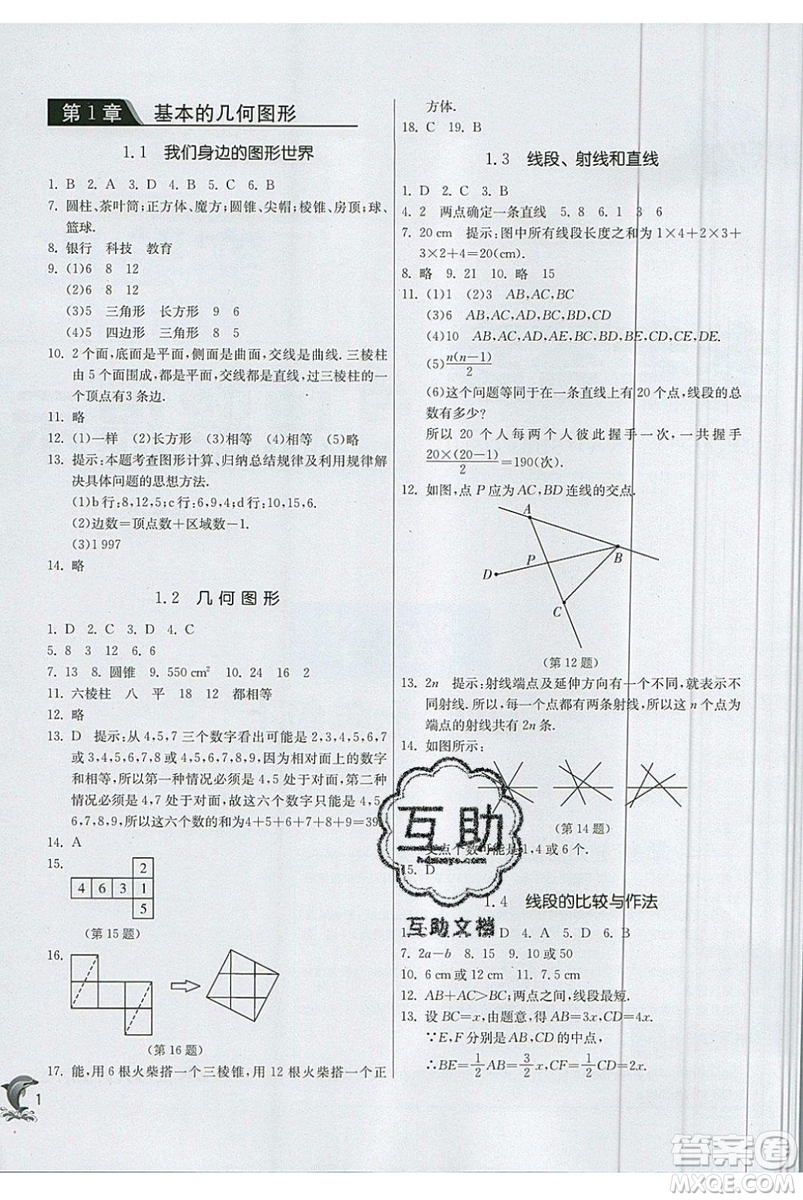 第1章 基本的几何图形
1.1 我们身边的图形世界
1. B 2. A 3. D 4. A 5. C 6. B
7. 圆柱、茶叶筒;正方体、魔方;圆锥、尖帽;棱锥、房顶;球、
篮球.
8. 银行 科技 教育
9. (1)6 8 12
(2)6 8 12
(3)5 三角形 长方形 9 6
(4)5 四边形 三角形 8 5
10. 2个面,底面是平面,侧面是曲面,交线是曲线.三棱柱
由5个面围成,都是平面,交线都是直线,过三棱柱的一
个顶点有3条边.
11. 略
12. (1)一样 (2)长方形 (3)相等 (4)相等 (5)略
13. 提示:本题考查图形计算、归纳总结规律及利用规律解
决具体问题的思想方法.
(1)b行:8,12,5;c行:6,9,4;d行:10,15,6.
(2)边数=顶点数+区域数−1.
(3)1 997
14. 略
1.2 几何图形
1. D 2. C 3. D 4. C
5. 8 3 12 6. 6
7. 13 8. 圆锥 9. 550 cm² 10. 24
11. 六棱柱 八 平 18 12 都相等
12. 略
13. D 提示:从4,5,7三个数字看出可能是2,3,4,5,6,7
或3,4,5,6,7,8或4,5,6,7,8,9,因为相对面上的数字
和相等,所以第一种情况必须是4,5处于对面,第二种
情况必须是4,7,5,6处于对面,故这六个数字只能是4,
5,6,7,8,9,所以这六个数的和为4+5+6+7+8+9=39.
14. A
15.
2
4 6 3 1
5
(第15题)
16.
(第16题)
17. 能,用6根火柴搭一个三棱锥,用12根火柴搭一个正
1
方体.
18. C 19. B
1.3 线段、射线和直线
1. D 2. C 3. B
4. 2 两点确定一条直线 5. 8 6. 1 3 6
7. 20 cm 提示:图中所有线段长度之和为1×4+2×3+
3×2+4=20(cm).
8. 略 9. 21 10. 略 15
11. (1)1 (2)3 AB,AC,BC
(3)6 AB,AC,AD,BC,BD,CD
(4)10 AB,AC,AD,AE,BC,BD,BE,CD,CE,DE.
(5)n(n−1)/2
(6)这个问题等同于在一条直线上有20个点,线段的总
数有多少?
所以20个人每两个人彼此握手一次,一共握手
20×(20−1)/2=190(次).
12. 如图,点P应为AC、BD连线的交点.
A
P B
D
C
(第12题)
13. 2n 提示:射线端点及延伸方向有一个不同,就表示不
同射线.所以,每个点都有两条射线,所以以这n个点为
端点的射线共有2n条.
14. 如图所示:
(第14题)
交点个数可能是1,4或6个.
15. D
1.4 线段的比较与作法
7. 2a−b 8. 15 9. 10或50
10. 6 cm或12 cm 11. 7.5 cm
12. AB+AC>BC;两点之间,线段最短.
13. 设BC=x,由题意,得AB=3x,CD=4x.
∵E,F分别是AB、CD的中点,
∴BE=1/2AB=3/2x,CF=1/2CD=2x.
互助
hdzuoye.com
互助文档
答案圈
MXQE.COM